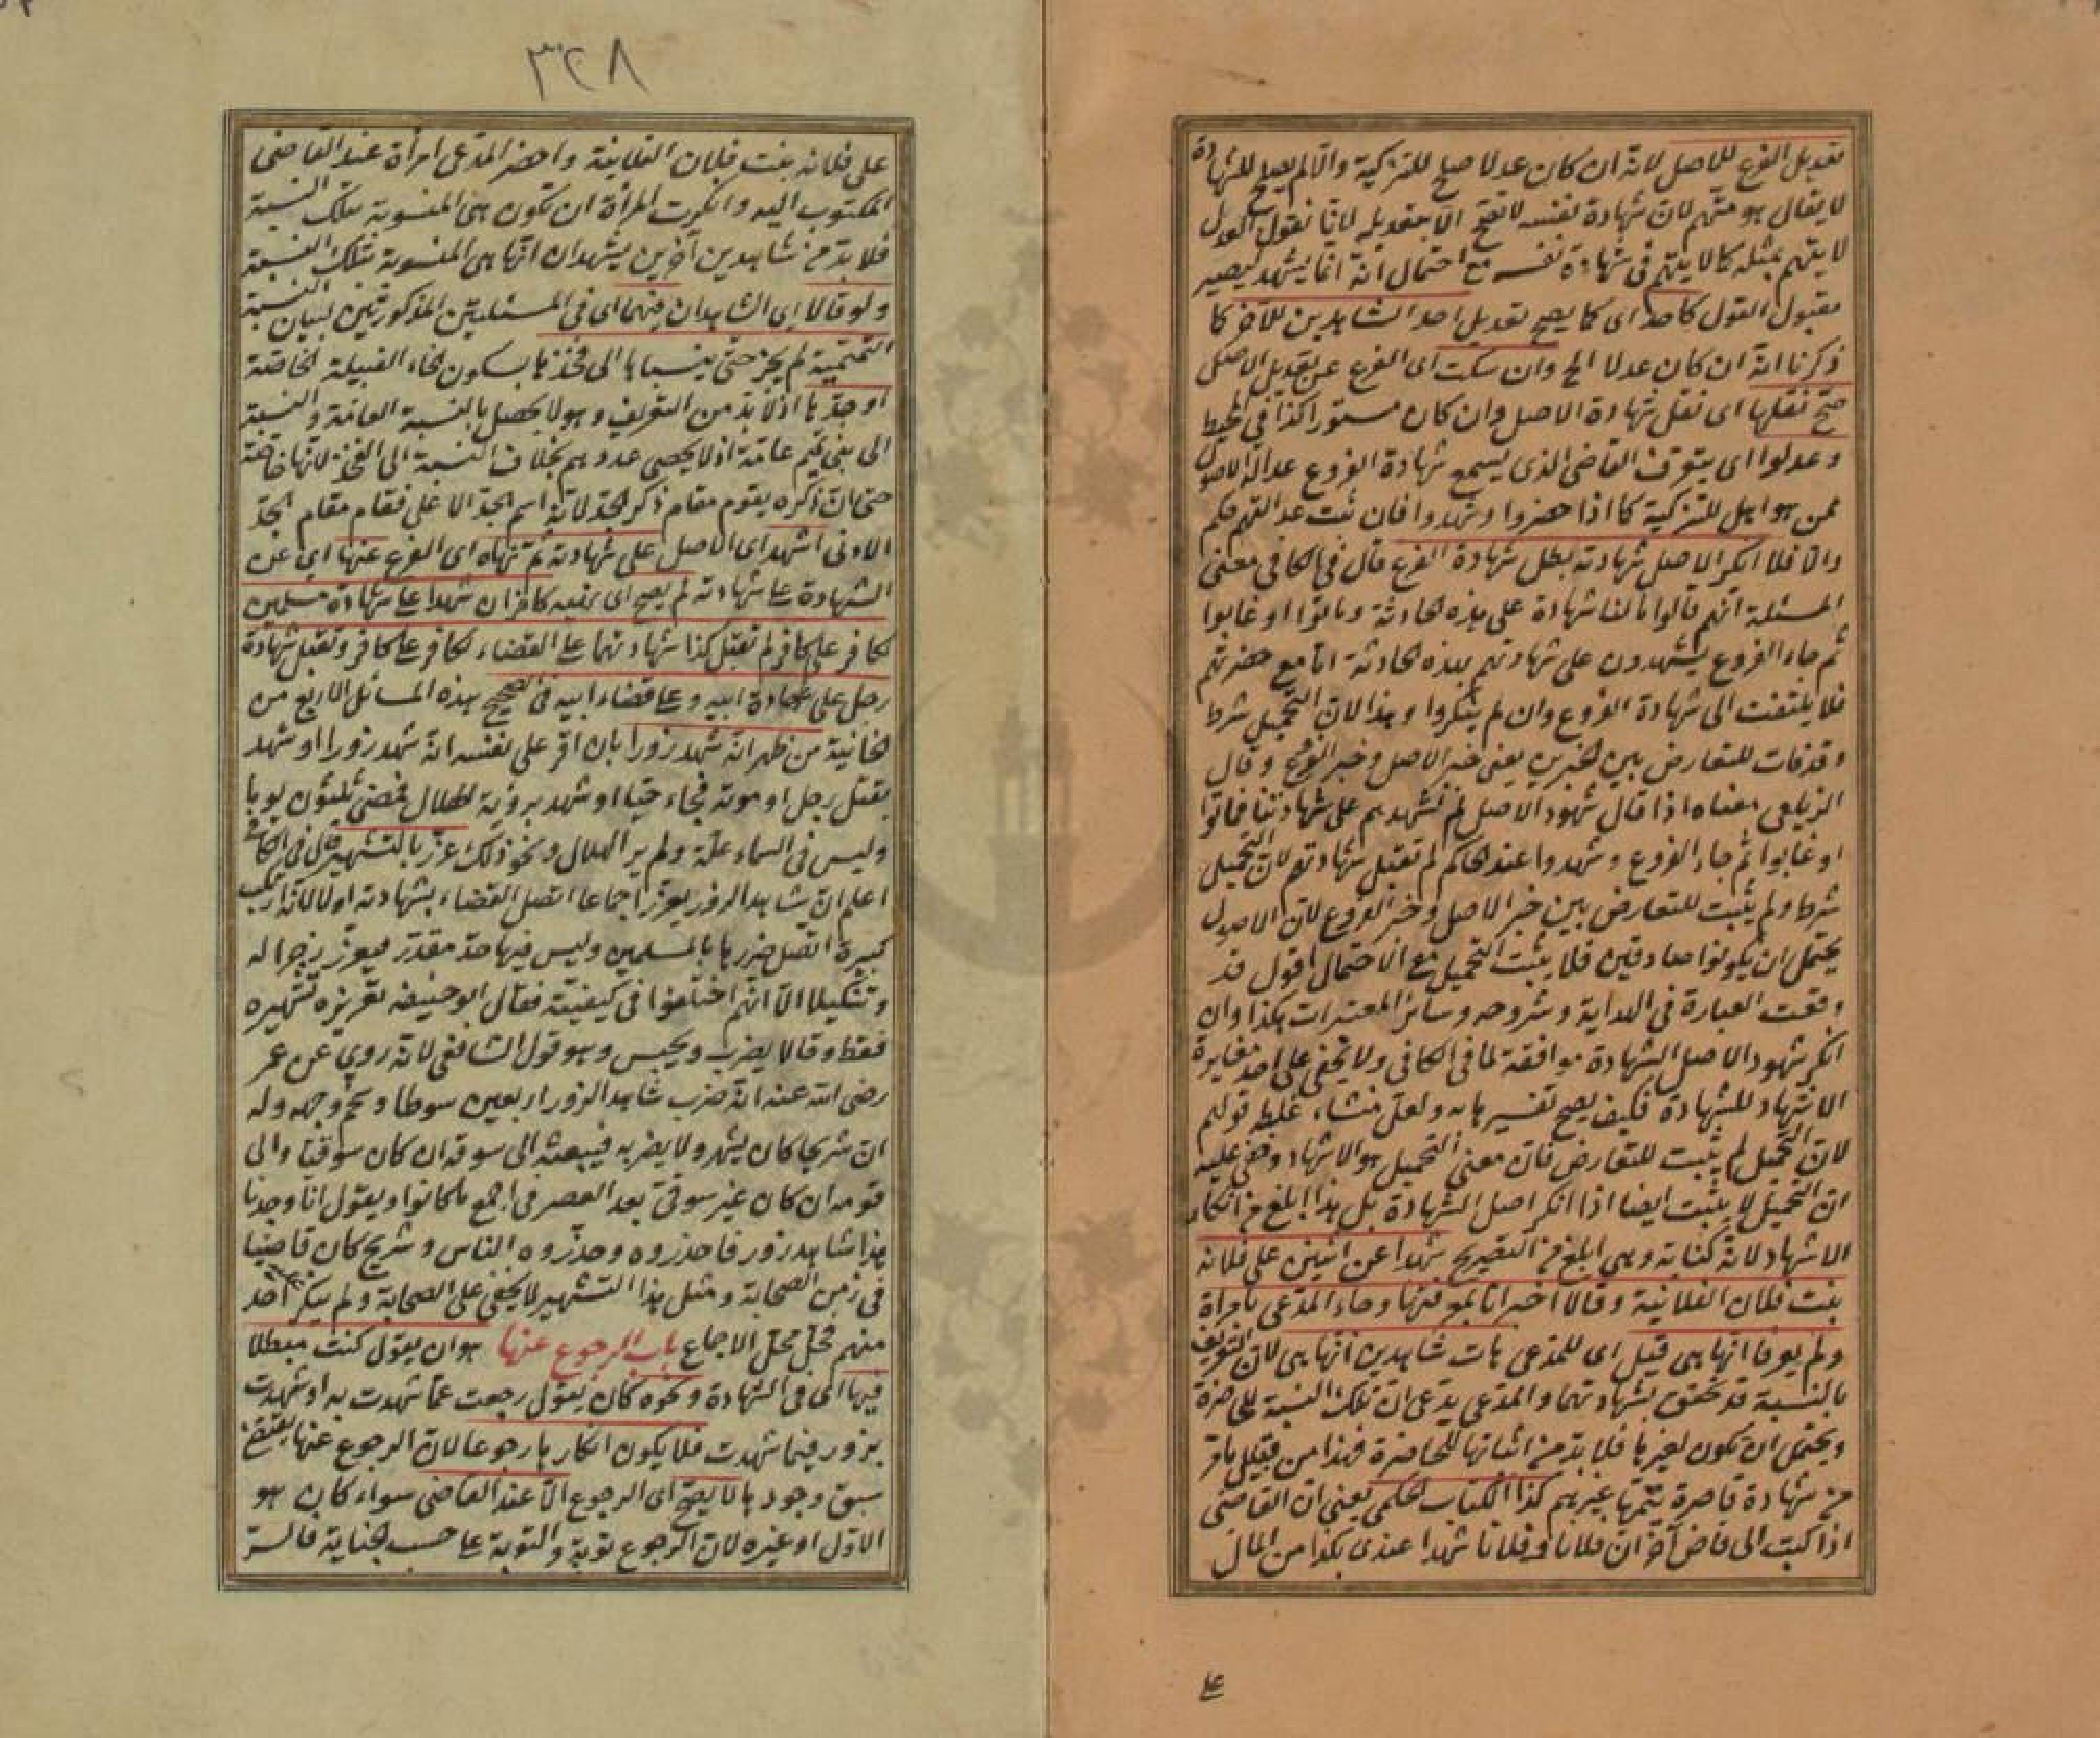 تعديل الفرع للاصل لانه ان كان عدلا صلح للتزكية والا لم يصلح للشهادة
لا يقال هو متهم لان شهادة نفسه لا تصح الا بتعديله لانا نقول العدل
لا يتهم بمثله كما لا يتهم فى شهادة نفسه مع احتمال انه انما يشهد ليصير
مقبول القول كاحد اى كما يصح تعديل احد الشاهدين للآخر كما
ذكرنا انه ان كان عدلا الخ وان سكت اى الفرع عن تعديل الاصل
صح نقلها اى نقل شهادة الاصل وان كان مستورا كذا فى المحيط
وعدلوا اى يتعرف القاضى الذى يسمع شهادة الفروع عدالة الاصول
ممن هو اهل للتزكية كما اذا حضروا وشهدوا فان ثبت عدالتهم حكم
والا فلا انكر الاصل شهادته بطل شهادة الفرع قال فى الكافى معنى
المسئلة انهم قالوا ما لنا شهادة على هذه الحادثة وماتوا او غابوا
ثم جاء الفروع يشهدون على شهادتهم بهذه الحادثة اما مع حضرتهم
فلا يلتفت الى شهادة الفروع وان لم ينكروا وهذا لان التحميل شرط
وقد فات للتعارض بين الخبرين يعنى خبر الاصل وخبر الفرع وقال
الزيلعى معناه اذا قال شهود الاصل لم نشهدهم على شهادتنا فماتوا
او غابوا ثم جاء الفروع وشهدوا عند الحاكم لم تقبل شهادتهم لان التحميل
شرط ولم يثبت للتعارض بين خبر الاصل وخبر الفروع لان الاصول
يحتمل ان يكونوا صادقين فلا يثبت التحميل مع الاحتمال اقول قد
وقعت العبارة فى الهداية وشروحه وسائر المعتبرات هكذا وان
انكر شهود الاصل الشهادة موافقة لما فى الكافى ولا يخفى على احد مغايرة
الاشهاد للشهادة فكيف يصح تفسيرها به ولعل منشاء غلطه قولهم
لان التحميل لم يثبت للتعارض فان معنى التحميل هو الاشهاد وخفى عليه
ان التحميل لا يثبت ايضا اذا انكر اصل الشهادة بل هذا ابلغ من انكار
الاشهاد لانه كناية وهى ابلغ من التصريح شهدا عن اثنين على فلانة
بنت فلان الفلانية وقالا اخبرانا بمعرفتها وجاء المدعى بامرأة
ولم يعرفا انها هى قيل اى للمدعى هات شاهدين انها هى لان التعريف
بالنسبة قد تحقق بشهادتهما والمدعى يدعى ان تلك النسبة للحاضرة
ويحتمل ان تكون لغيرها فلا بد من اثباتها للحاضرة فهذا من قبيل ما مر
من شهادة قاصرة يتمها غيرهم كذا الكتاب الحكمى يعنى ان القاضى
اذا كتب الى قاض آخر ان فلانا وفلانا شهدا عندى بكذا من المال
على
٣٢٨
على فلانة بنت فلان الفلانية واحضر المدعى امرأة عند القاضى
المكتوب اليه وانكرت المرأة ان تكون هى المنسوبة بتلك النسبة
فلا بد من شاهدين آخرين يشهدان انها هى المنسوبة بتلك النسبة
ولو قالا اى الشاهدان فيهما اى فى المسئلتين المذكورتين لبيان النسبة
التميمية لم يجز حتى ينسباها الى فخذها بسكون الخاء القبيلة الخاصة
او جدها اذ لا بد من التعريف وهو لا يحصل بالنسبة العامة والنسبة
الى بنى تميم عامة اذ لا يحصى عددهم بخلاف النسبة الى الفخذ لانها خاصة
حتى ان ذكره يقوم مقام ذكر الجد لانه اسم الجد الاعلى فقام مقام الجد
الادنى اشهد اى الاصل على شهادته ثم نهاه اى الفرع عنها اى عن
الشهادة على شهادته لم يصح اى نهيه كافران شهدا على شهادة مسلمين
لكافر على كافر لم تقبل كذا شهادتهما على القضاء لكافر على كافر وتقبل شهادة
رجل على شهادة ابيه وعلى قضاء ابيه فى الصحيح هذه المسائل الاربع من
الخانية من ظهر انه شهد زورا بان اقر على نفسه انه شهد زورا او شهد
بقتل رجل او موته فجاء حيا او شهد برؤية الهلال فمضى ثلثون يوما
وليس فى السماء علة ولم ير الهلال ونحو ذلك عزر بالتشهير قال فى الكافى
اعلم ان شاهد الزور يعزر اجماعا اتصل القضاء بشهادته اولا لانه ارتكب
كبيرة اتصل ضررها بالمسلمين وليس فيها حد مقدر فيعزر زجرا له
وتنكيلا الا انهم اختلفوا فى كيفيته فقال ابو حنيفة تعزيره تشهيره
فقط وقالا يضرب ويحبس وهو قول الشافعى لانه روى عن عمر
رضى الله عنه انه ضرب شاهد الزور اربعين سوطا وسخم وجهه وله
ان شريحا كان يشهر ولا يضربه فيبعثه الى سوقه ان كان سوقيا والى
قومه ان كان غير سوقى بعد العصر فى اجمع ما كانوا ويقول انا وجدنا
هذا شاهد زور فاحذروه وحذروه الناس وشريح كان قاضيا
فى زمن الصحابة ومثل هذا التشهير لا يخفى على الصحابة ولم ينكر احد
منهم فحل محل الاجماع باب الرجوع عنها هو ان يقول كنت مبطلا
فيها اى فى الشهادة ونحوه كان يقول رجعت عما شهدت به او شهدت
بزور فيما شهدت فلا يكون انكارها رجوعا لان الرجوع عنها يقتضى
سبق وجودها لا يصح اى الرجوع الا عند القاضى سواء كان هو
الاول او غيره لان الرجوع توبة والتوبة على حسب الجناية فالسر